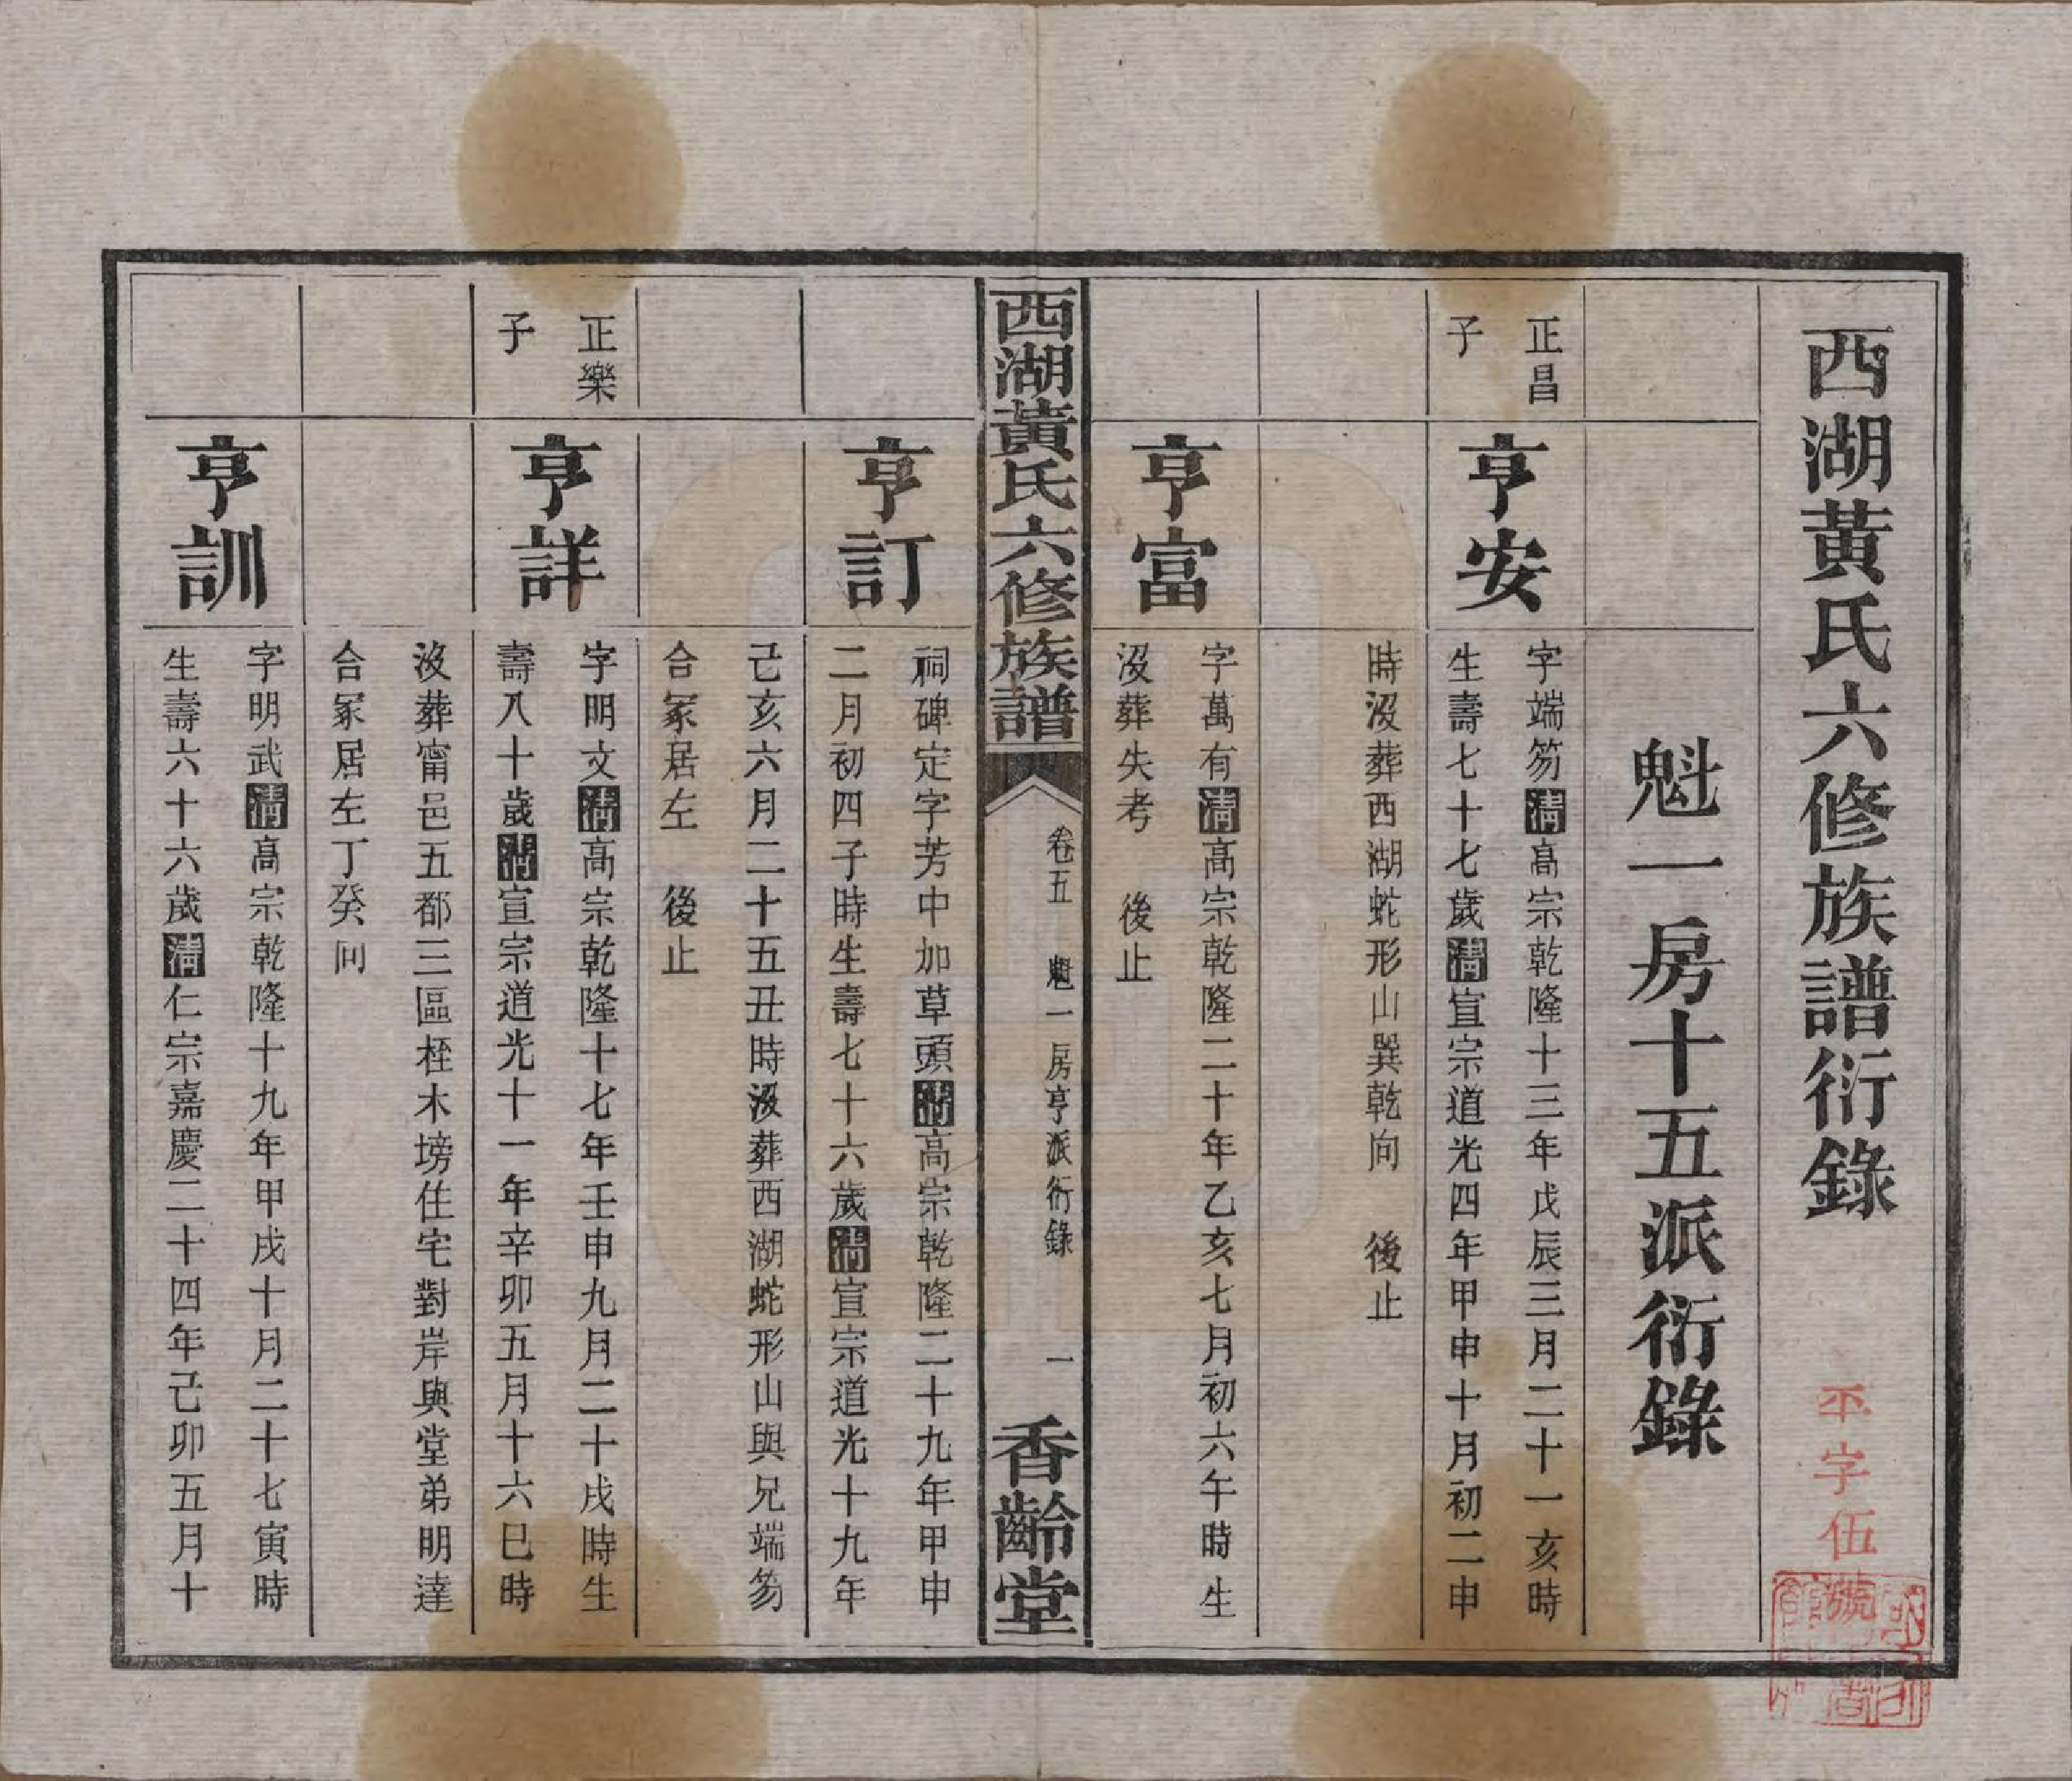 西湖黃氏六修族譜衍錄
平字伍號
魁一房十五派衍錄
正昌
子
亨安
字端笏清高宗乾隆十三年戊辰三月二十一亥時
生壽七十七歲清宣宗道光四年甲申十月初二申
時沒葬西湖蛇形山巽乾向　後止
亨富
字萬有清高宗乾隆二十年乙亥七月初六午時生
沒葬失考　後止
西湖黃氏六修族譜
卷五　魁一房亨派衍錄　一
香齡堂
亨訂
祠碑定字芳中加草頭清高宗乾隆二十九年甲申
二月初四子時生壽七十六歲清宣宗道光十九年
己亥六月二十五丑時沒葬西湖蛇形山與兄端笏
合冢居左　後止
正樂
子
亨詳
字明文清高宗乾隆十七年壬申九月二十戌時生
壽八十歲清宣宗道光十一年辛卯五月十六巳時
沒葬甯邑五都三區桎木塝住宅對岸與堂弟明達
合冢居左丁癸向
亨訓
字明武清高宗乾隆十九年甲戌十月二十七寅時
生壽六十六歲清仁宗嘉慶二十四年己卯五月十